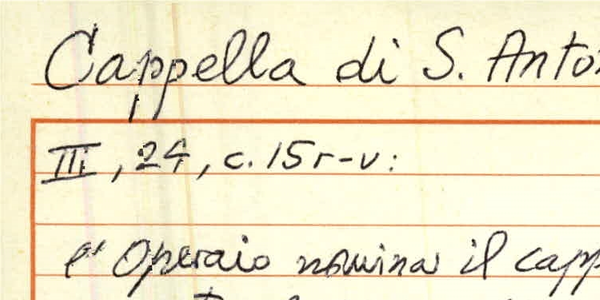 Cappella di S. Anto
III, 24, c. 15r-v:
l'Operaio nomina il capp